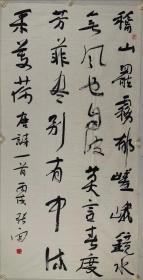 稽山罷霧郁嵯峨鏡水
無風也自波莫言春度
芳菲盡別有中流
采芰荷 唐詩一首丙戌